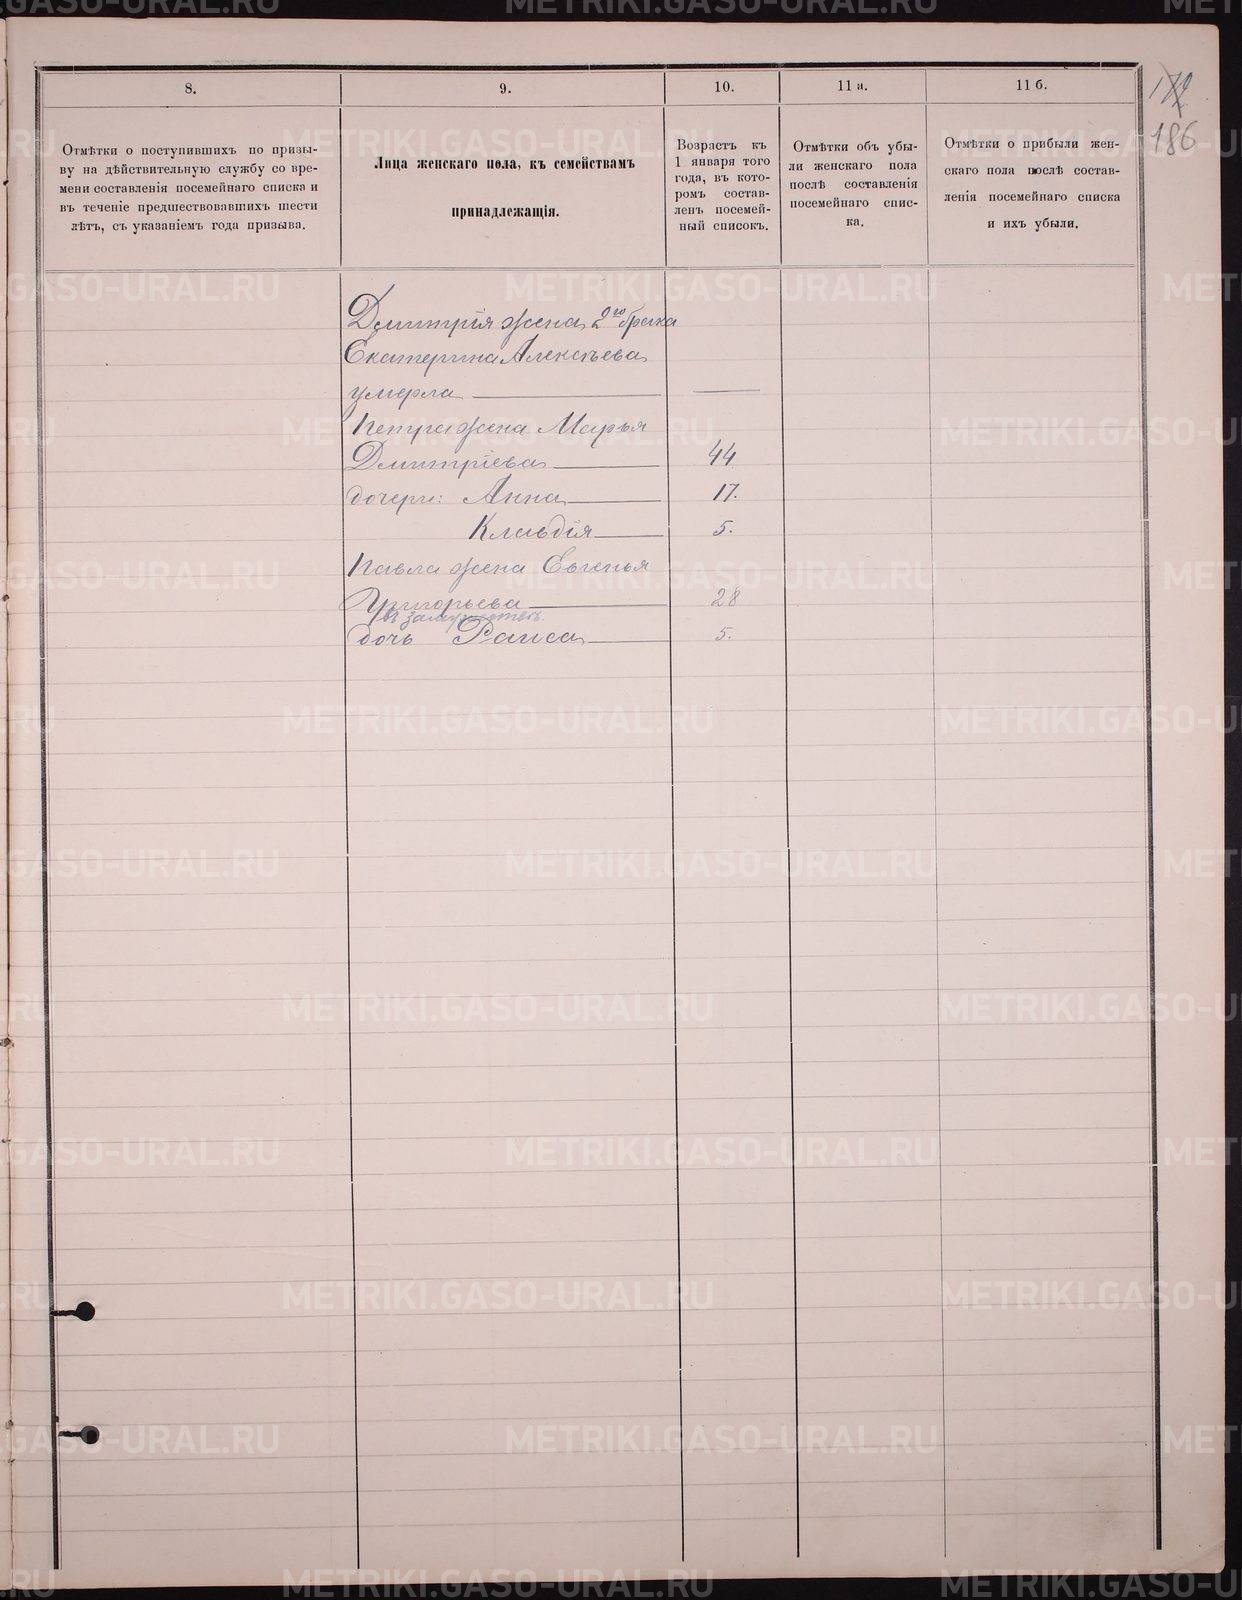 8.
9.
10.
11 а.
11 б.
186
Отмѣтки о поступившихъ по призы-
ву на дѣйствительную службу со вре-
мени составленія посемейнаго списка и
въ теченіе предшествовавшихъ шести
лѣтъ, съ указаніемъ года призыва.
Лица женскаго пола, къ семействамъ
принадлежащія.
Возрастъ къ
1 января того
года, въ кото-
ромъ состав-
ленъ посемей-
ный списокъ.
Отмѣтки объ убы-
ли женскаго пола
послѣ составленія
посемейнаго спис-
ка.
Отмѣтки о прибыли жен-
скаго пола послѣ состав-
ленія посемейнаго списка
и ихъ убыли.
Дмитрія жена 2го брака
Екатерина Алексѣева
умерла —
Петра жена Марья
Дмитріева 44
дочери: Анна 17.
Клавдія 5.
Павла жена Евгенья
Григорьева 28
въ замужествѣ
дочь Раиса 5.
METRIKI.GASO-URAL.RU